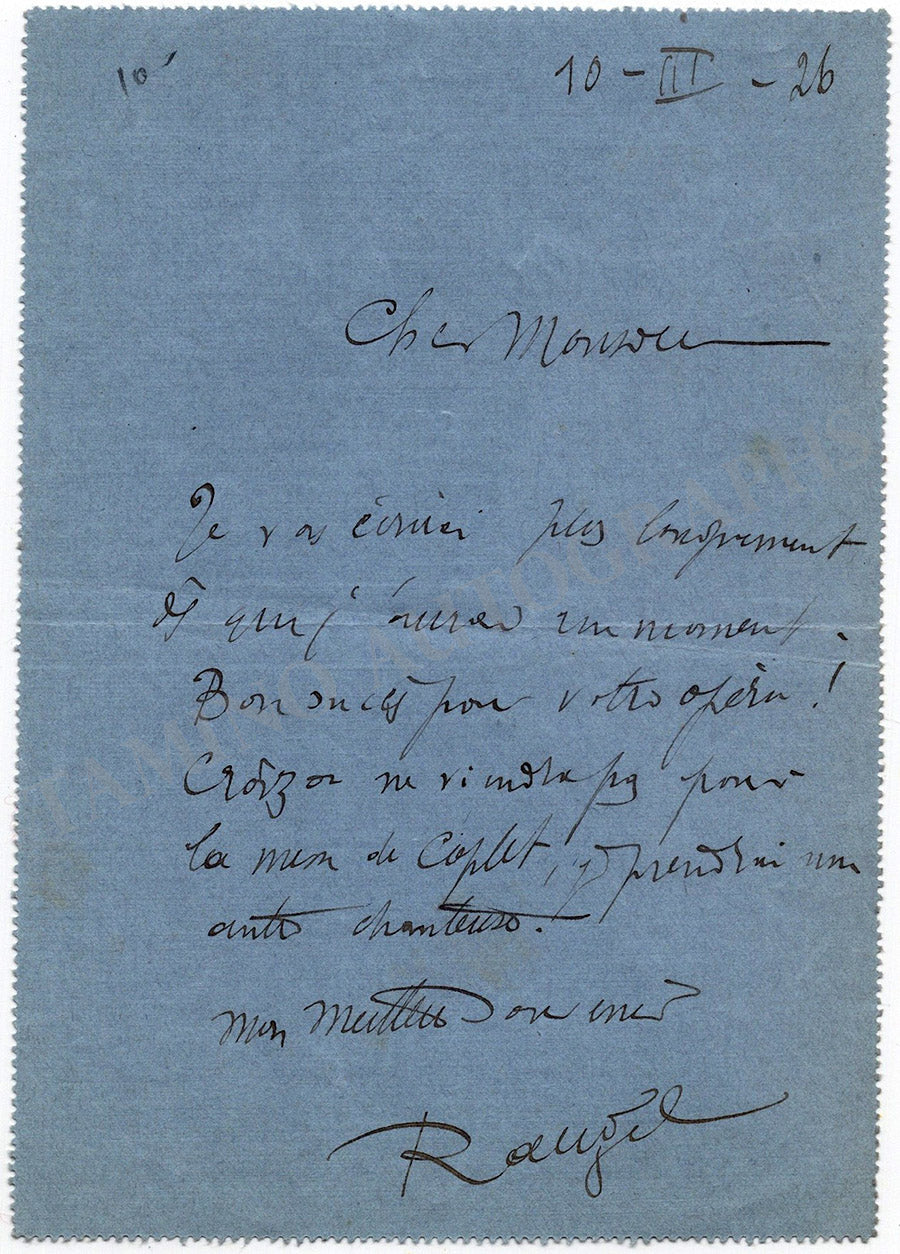 10-
10 - III - 26
Cher Monsieur
Je vous écrirai plus longuement
dès que j'aurai un moment.
Bon succès pour votre opéra !
Croiza ne viendra pas pour
la messe de Caplet, je prendrai une
autre chanteuse.
Mon meilleur souvenir
TAMINO AUTOGRAPHS